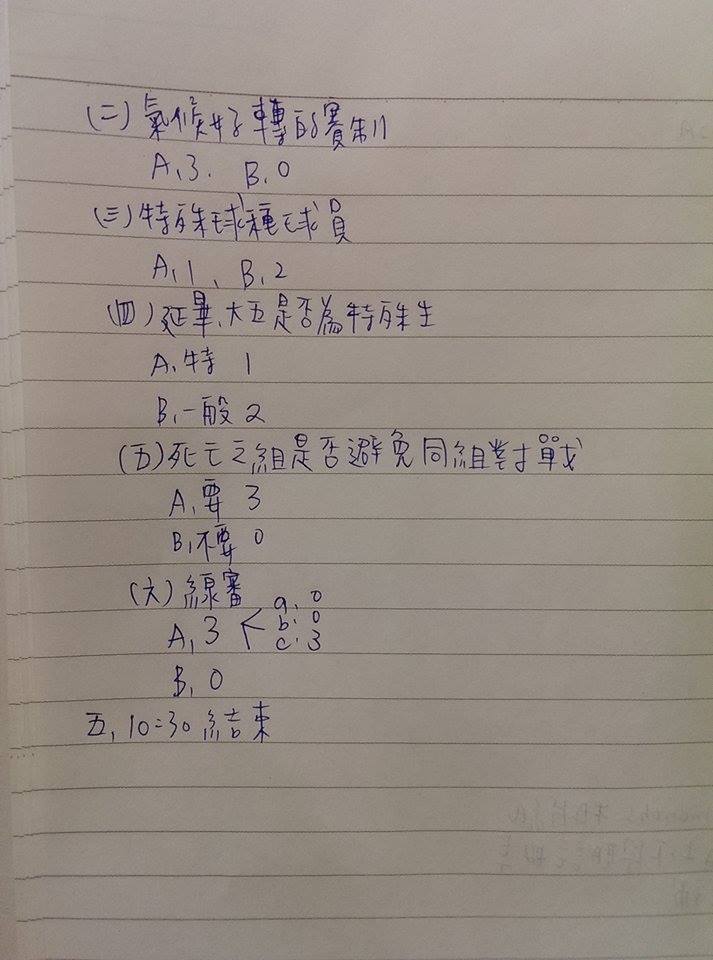 (二) 氣候好轉的賽制
A, 3. B, 0
(三) 特殊球種球員
A, 1、B, 2
(四) 延畢、大五是否為特殊生
A, 特 1
B, 一般 2
(五) 死亡之組是否避免同組對戰
A, 要 3
B, 不要 0
(六) 線審
A, 3 < a. 0
b. 0
c. 3
B, 0
五, 10:30 結束